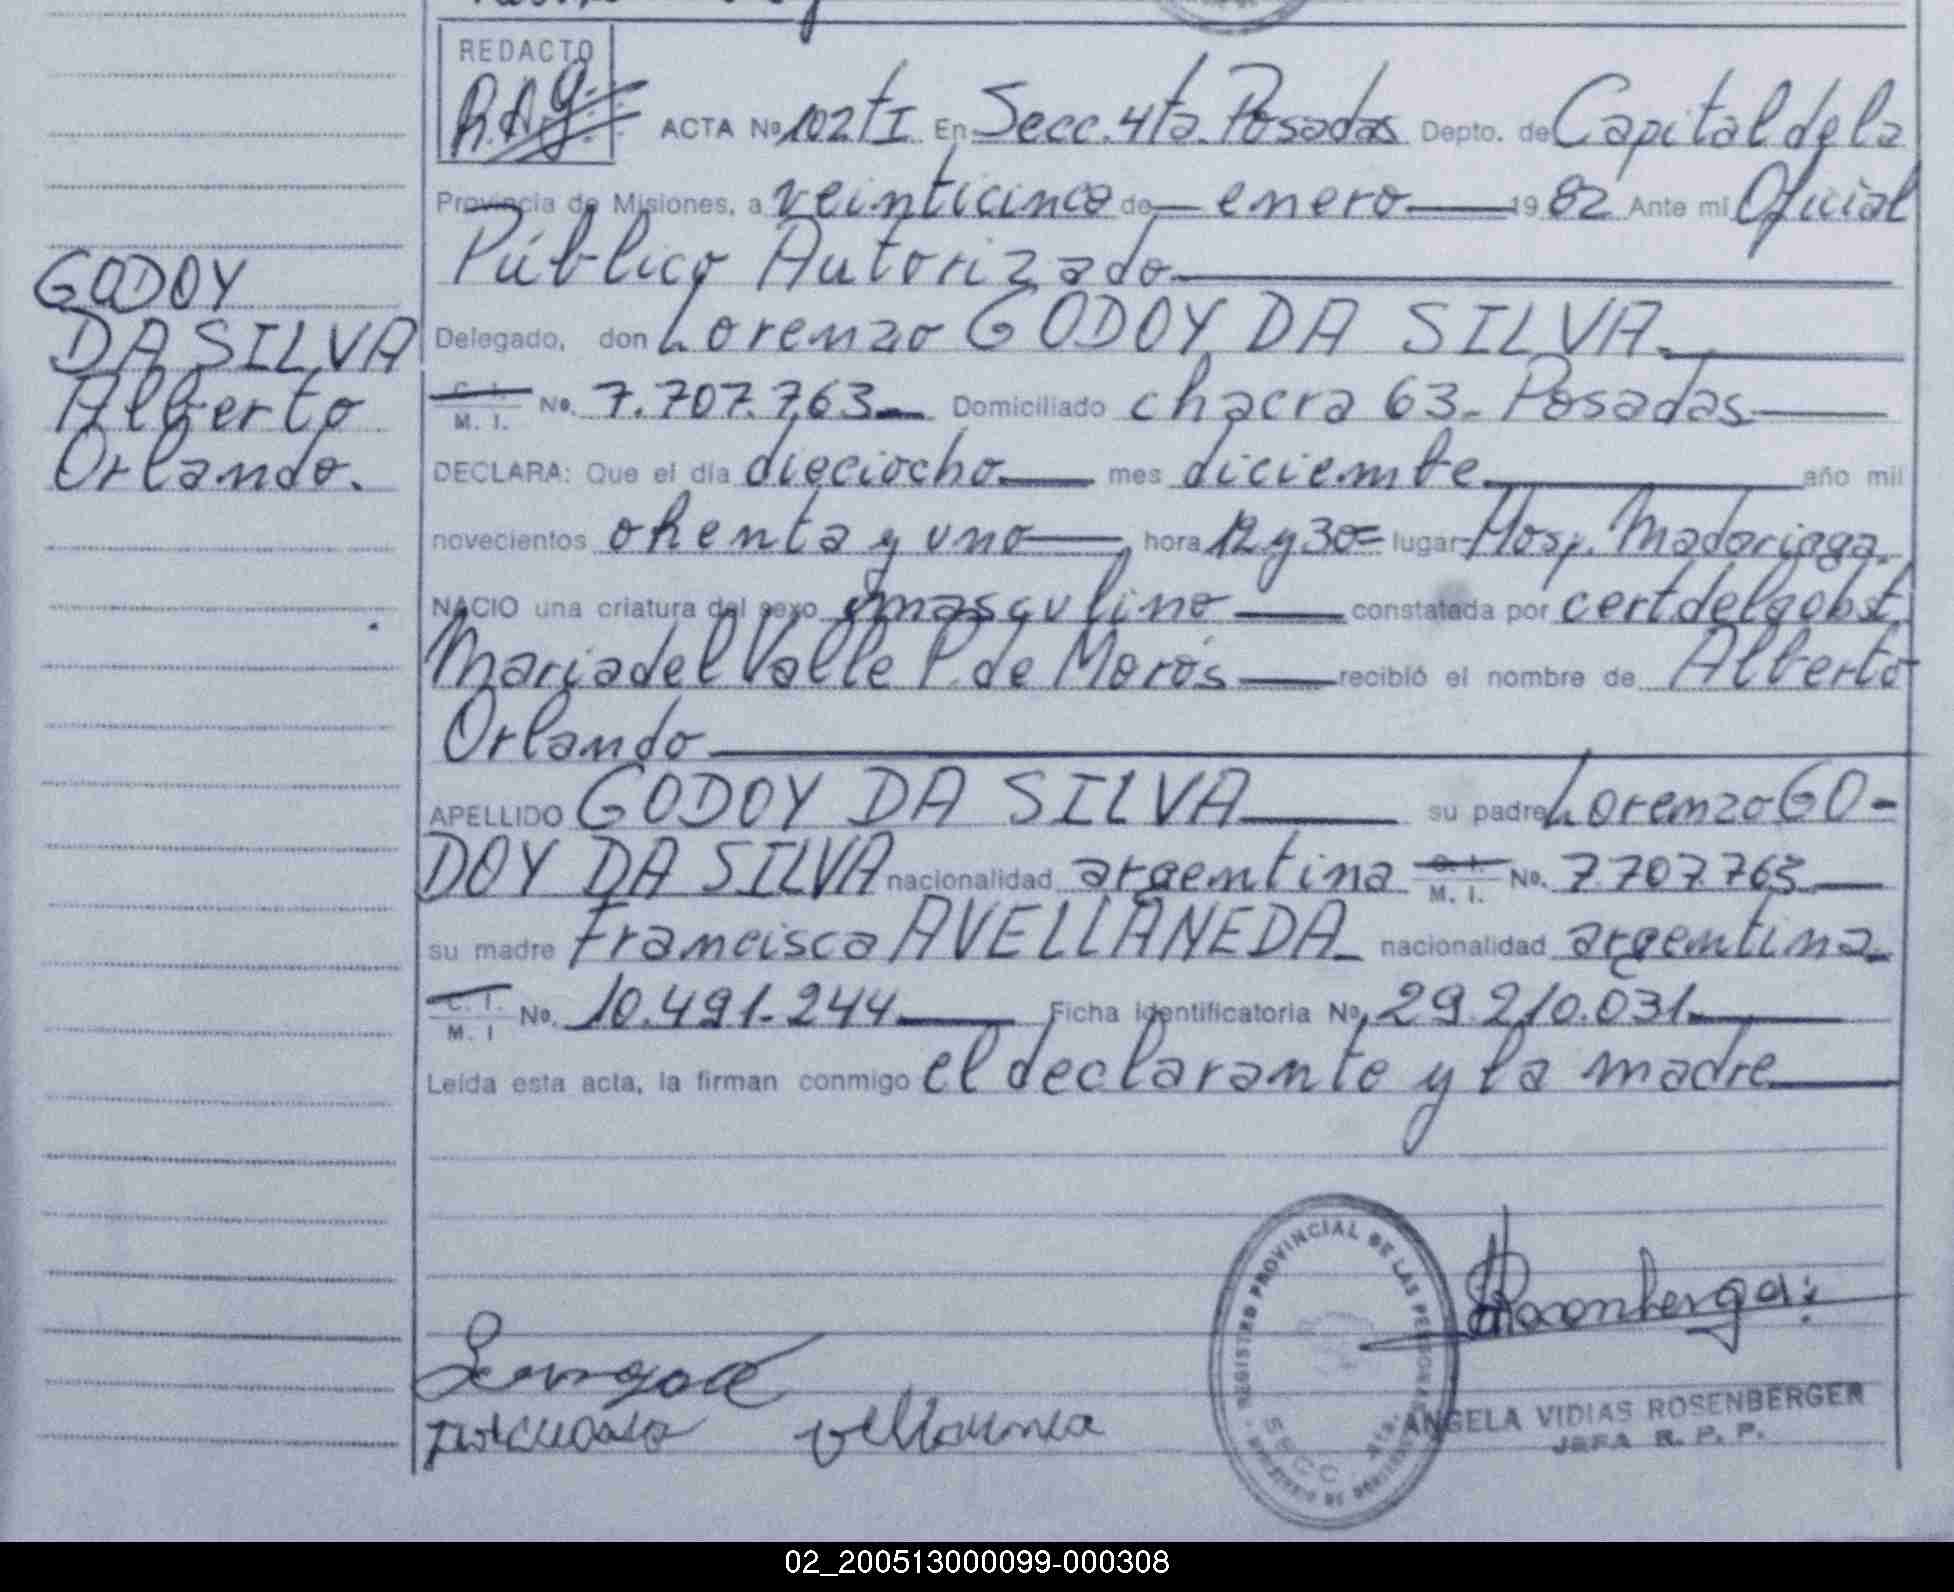 REDACTO
R.A.G.
ACTA No 102 tI En Secc. 4ta. Posadas Depto. de Capital de la
Provincia de Misiones, a veinticinco de enero 1982 Ante mi Oficial
Público Autorizado
GODOY
DA SILVA
Alberto
Orlando.
Delegado, don Lorenzo GODOY DA SILVA.
C. I.
M. I. No. 7.707.763 Domiciliado chacra 63. Posadas
DECLARA: Que el día dieciocho mes diciembre año mil
novecientos ohenta y uno hora 12 y 30= lugar Hosp. Madariaga.
NACIO una criatura del sexo masculino constatada por cert de la obst.
Maria del Valle P. de Morós recibió el nombre de Alberto
Orlando
APELLIDO GODOY DA SILVA su padre Lorenzo GO-
DOY DA SILVA nacionalidad argentina C. I. M. I. No. 7.707.763
su madre Francisca AVELLANEDA nacionalidad argentina
C. I.
M. I No. 10.491.244 Ficha identificatoria No. 29.210.031.
Leída esta acta, la firman conmigo el declarante y la madre
REGISTRO PROVINCIAL DE LAS PERSONAS
SECC. 4ta.
Rosenberger
ANGELA VIDIAS ROSENBERGER
JEFA R. P. P.
02_200513000099-000308